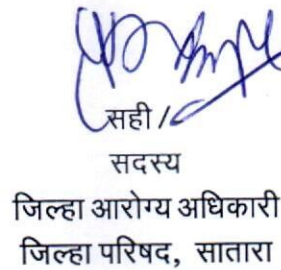 सही/
सदस्य
जिल्हा आरोग्य अधिकारी
जिल्हा परिषद, सातारा